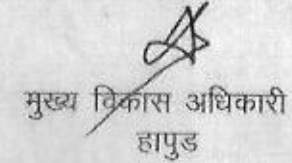 मुख्य विकास अधिकारी
हापुड